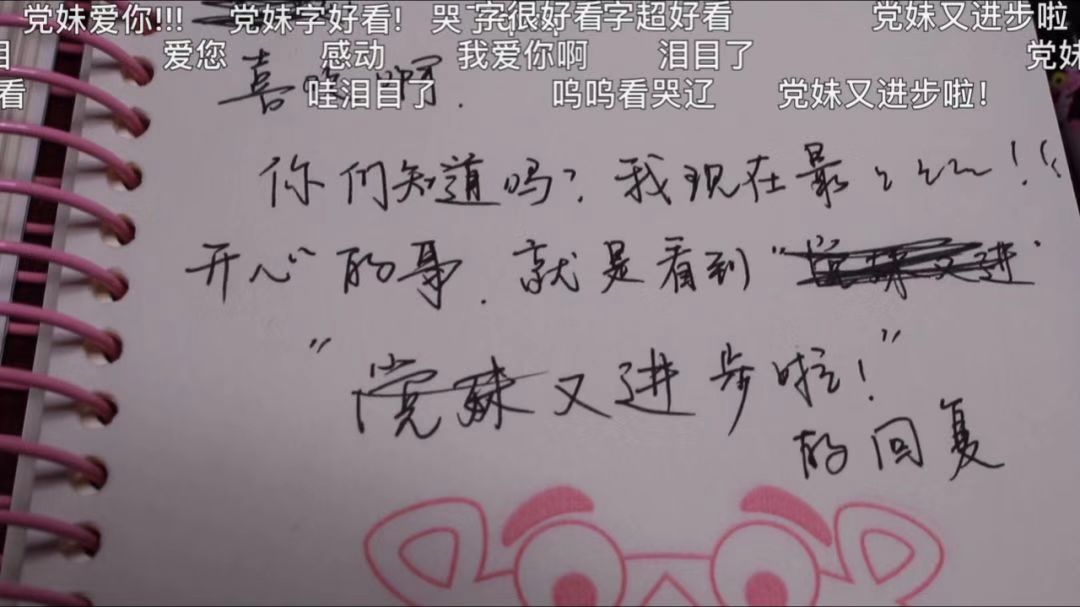 党妹爱你!!! 党妹字好看! 哭了 字很好看 字超好看 党妹又进步啦
泪目 爱您 感动 我爱你啊 泪目了 党妹
看 哇泪目了 呜呜看哭辽 党妹又进步啦!
喜 啊.
你们知道吗?我现在最
开心的事.就是看到"党妹又进"
"党妹又进步啦!"
的回复